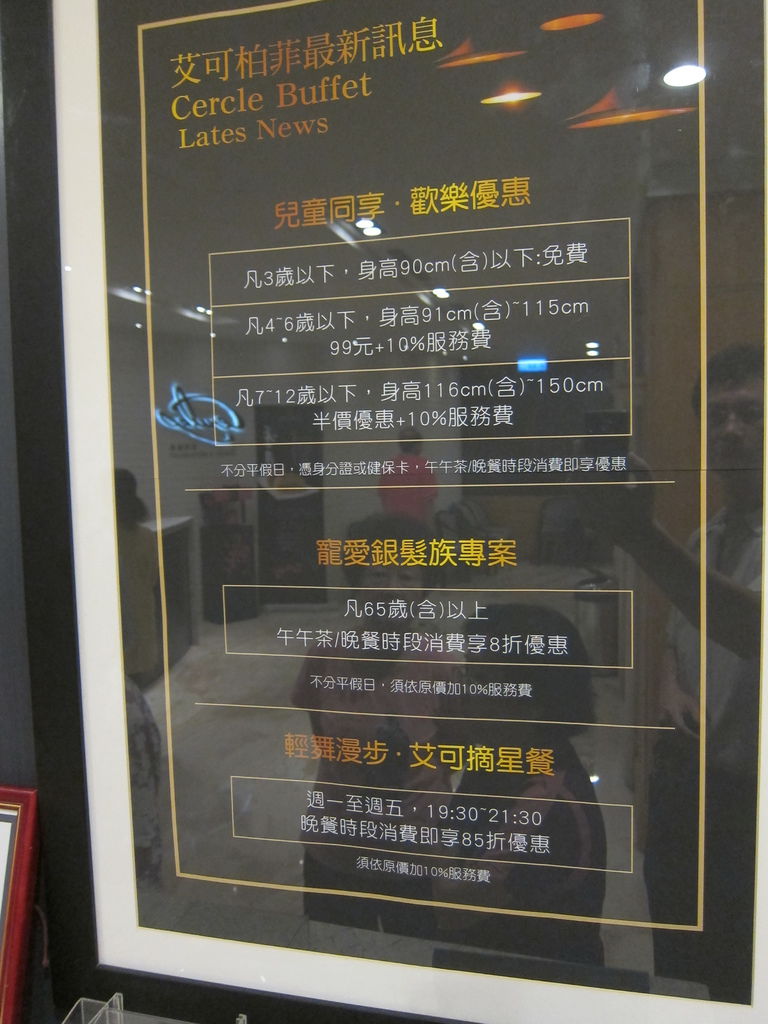 艾可柏菲最新訊息
Cercle Buffet
Lates News
兒童同享·歡樂優惠
凡3歲以下，身高90cm(含)以下:免費
凡4~6歲以下，身高91cm(含)~115cm
99元+10%服務費
凡7~12歲以下，身高116cm(含)~150cm
半價優惠+10%服務費
不分平假日，憑身分證或健保卡，午午茶/晚餐時段消費即享優惠
寵愛銀髮族專案
凡65歲(含)以上
午午茶/晚餐時段消費享8折優惠
不分平假日，須依原價加10%服務費
輕舞漫步·艾可摘星餐
週一至週五，19:30~21:30
晚餐時段消費即享85折優惠
須依原價加10%服務費